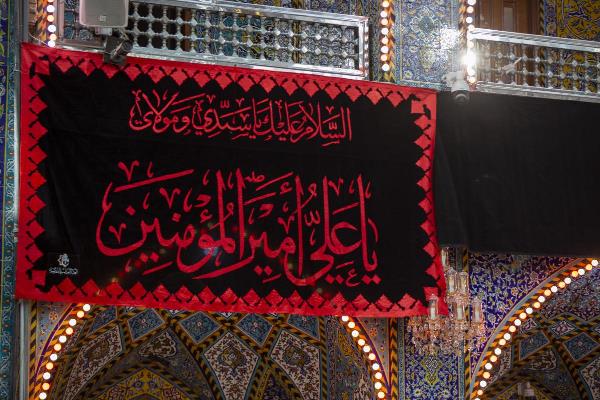 السَّلامُ عَلَيْكَ يَا سَيِّدِي وَمَوْلَايَ
يَا عَلِيُّ أَمِيرَ الْمُؤْمِنِينَ